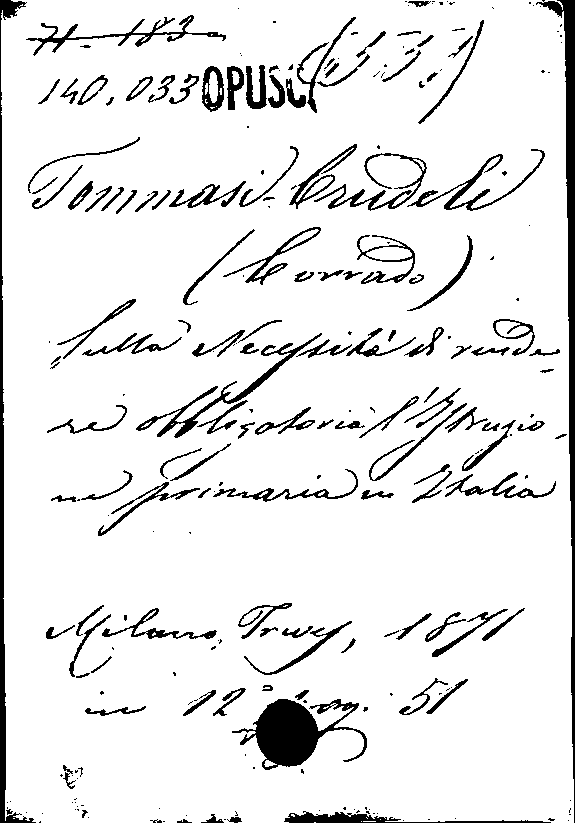 71. 183
140.033 OPUSC. (533)
Tommasi-Crudeli
(Corrado)
Sulla Necessità di rende-
re obbligatoria l'Istruzio-
ne primaria in Italia
Milano, Treves, 1871
in 12° pag. 51